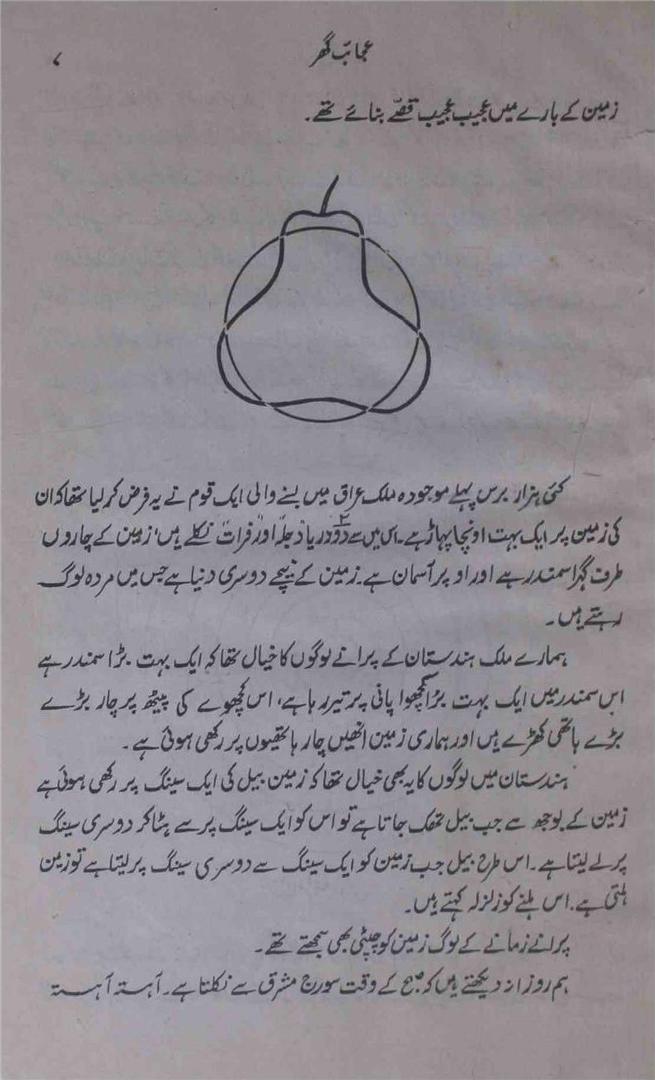 عجائب گھر
۷
زمین کے بارے میں عجیب عجیب قصّے بنائے تھے۔
کئی ہزار برس پہلے موجودہ ملک عراق میں بسنے والی ایک قوم نے یہ فرض کر لیا تھا کہ ان
کی زمین پر ایک بہت اونچا پہاڑ ہے۔ اس میں سے دو دریا دجلہ اور فرات نکلے ہیں، زمین کے چاروں
طرف گہرا سمندر ہے اور اوپر آسمان ہے۔ زمین کے نیچے دوسری دنیا ہے جس میں مردہ لوگ
رہتے ہیں۔
ہمارے ملک ہندستان کے پرانے لوگوں کا خیال تھا کہ ایک بہت بڑا سمندر ہے
اس سمندر میں ایک بہت بڑا کچھوا پانی پر تیر رہا ہے، اس کچھوے کی پیٹھ پر چار بڑے
بڑے ہاتھی کھڑے ہیں اور ہماری زمین انھیں چار ہاتھیوں پر رکھی ہوئی ہے۔
ہندستان میں لوگوں کا یہ بھی خیال تھا کہ زمین بیل کی ایک سینگ پر رکھی ہوئی ہے
زمین کے بوجھ سے جب بیل تھک جاتا ہے تو اس کو ایک سینگ پر سے ہٹا کر دوسری سینگ
پر لے لیتا ہے۔ اس طرح بیل جب زمین کو ایک سینگ سے دوسری سینگ پر لیتا ہے تو زمین
ہلتی ہے۔ اس ہلنے کو زلزلہ کہتے ہیں۔
پرانے زمانے کے لوگ زمین کو چپٹی بھی سمجھتے تھے۔
ہم روزانہ دیکھتے ہیں کہ صبح کے وقت سورج مشرق سے نکلتا ہے۔ آہستہ آہستہ